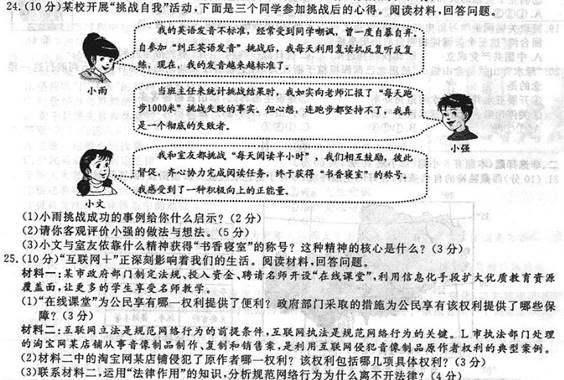 24.(10分)某校开展“挑战自我”活动,下面是三个同学参加挑战后的心得。阅读材料,回答问题。
我的英语发音不标准,经常受到同学嘲讽,曾一度自暴自弃。
自参加“纠正英语发音”挑战后,我每天利用复读机反复听反复
练,现在,我的发音越来越标准了。
小雨
当班主任来统计挑战结果时,我如实向老师汇报了“每天跑
步1000米”挑战失败的事实。但心想,连跑步都坚持不了,我真
是一个彻底的失败者。
小强
我和室友都挑战“每天阅读半小时”,我们相互鼓励,彼此
督促,齐心协力完成阅读任务,终于获得“书香寝室”的称号。
我感受到了一种积极向上的正能量。
小文
(1)小雨挑战成功的事例给你什么启示?(2分)
(2)请你客观评价小强的做法与想法。(5分)
(3)小文与室友依靠什么精神获得“书香寝室”的称号?这种精神的核心是什么?(3分)
25.(10分)“互联网+”正深刻影响着我们的生活。阅读材料,回答问题。
材料一:某市政府部门制定法规,投入资金、聘请名师开设“在线课堂”,利用信息化手段扩大优质教育资源
覆盖面,让更多的学生享受名师教学。
(1)“在线课堂”为公民享有哪一权利提供了便利?政府部门采取的措施为公民享有该权利提供了哪些保
障?(3分)
材料二:互联网立法是规范网络行为的前提条件,互联网执法是规范网络行为的关键。L市执法部门处理
的淘宝网某店铺从事音像制品制作、复制和销售案,是利用互联网侵犯音像制品原作者权利的典型案例。
(2)材料二中的淘宝网某店铺侵犯了原作者哪一权利?该权利包括哪几项具体权利?(3分)
(3)联系材料二,运用“法律作用”的知识,分析规范网络行为为什么离不开法律?(4分)